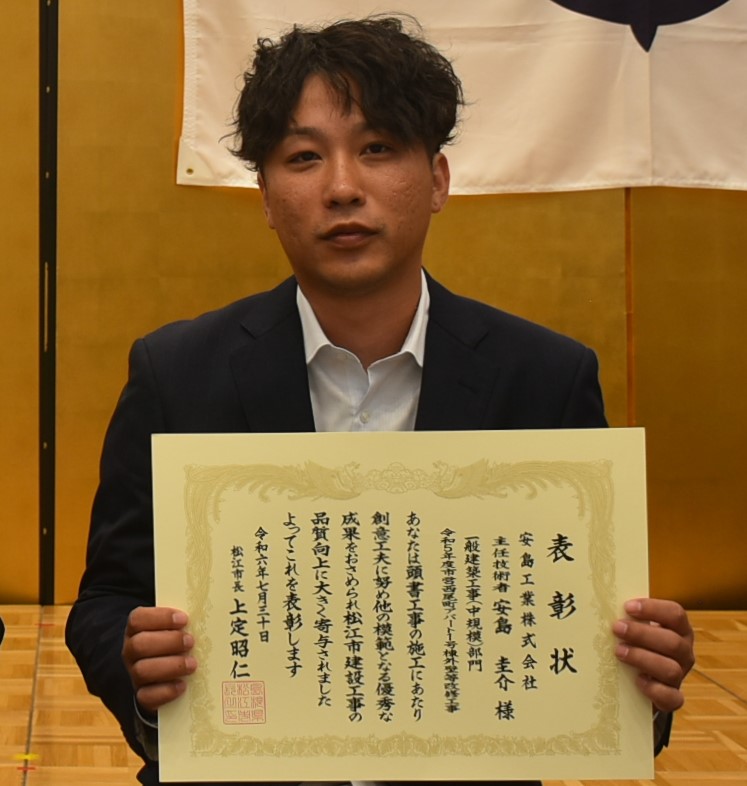 表彰状
安島工業株式会社
主任技術者 安島 圭介 様
一般建築工事(中規模)部門
令和5年度市営西尾町アパート1号棟外壁等改修工事
あなたは頭書工事の施工にあたり
創意工夫に努め他の模範となる優秀な
成果をおさめられ松江市建設工事の
品質向上に大きく寄与されました
よってこれを表彰します
令和六年七月三十日
松江市長 上定昭仁